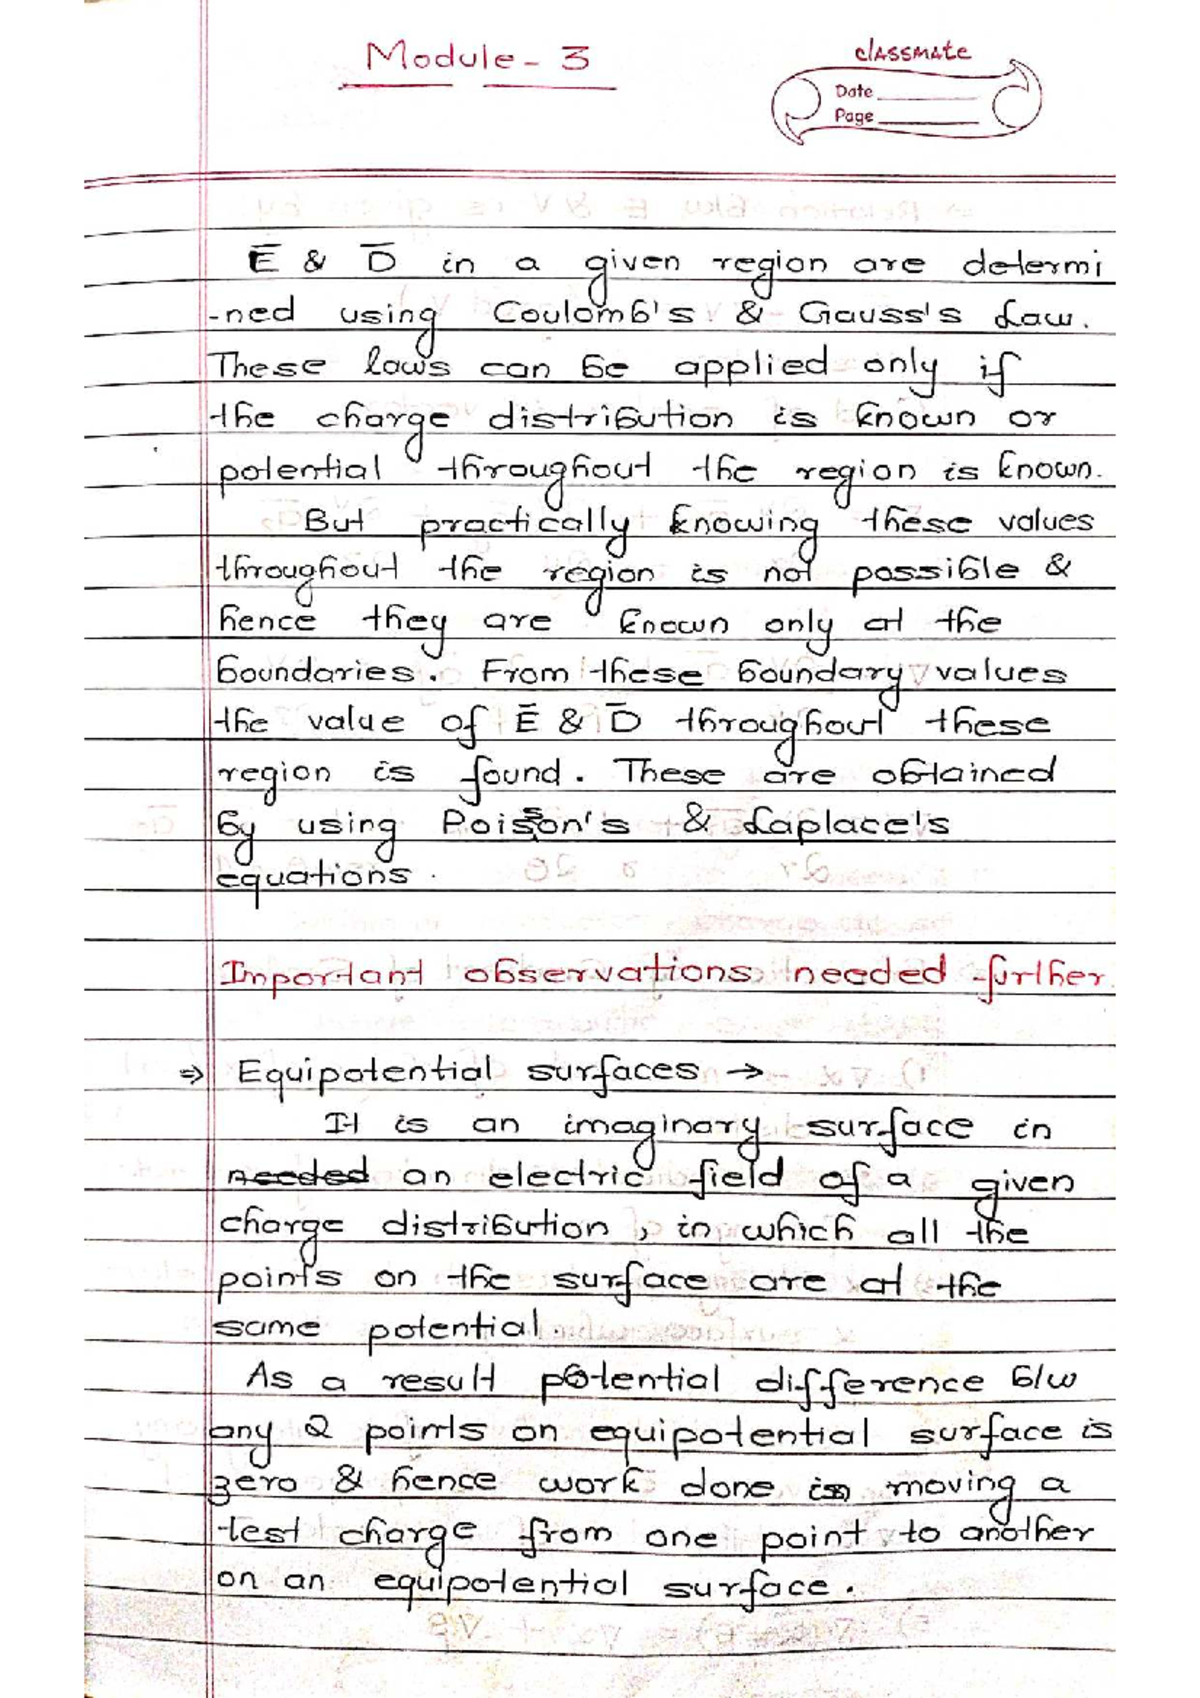 Module - 3
classmate
Date
Page
E̅ & D̅ in a given region are determi
-ned using Coulomb's & Gauss's Law.
These laws can be applied only if
the charge distribution is known or
potential throughout the region is known.
But practically knowing these values
throughout the region is not possible &
hence they are known only at the
boundaries. From these boundary values
the value of E̅ & D̅ throughout these
region is found. These are obtained
by using Poisson's & Laplace's
equations.
Important observations needed further
⇒ Equipotential surfaces →
It is an imaginary surface in
needed an electric field of a given
charge distribution, in which all the
points on the surface are at the
same potential.
As a result potential difference b/w
any 2 points on equipotential surface is
zero & hence work done in moving a
test charge from one point to another
on an equipotential surface.